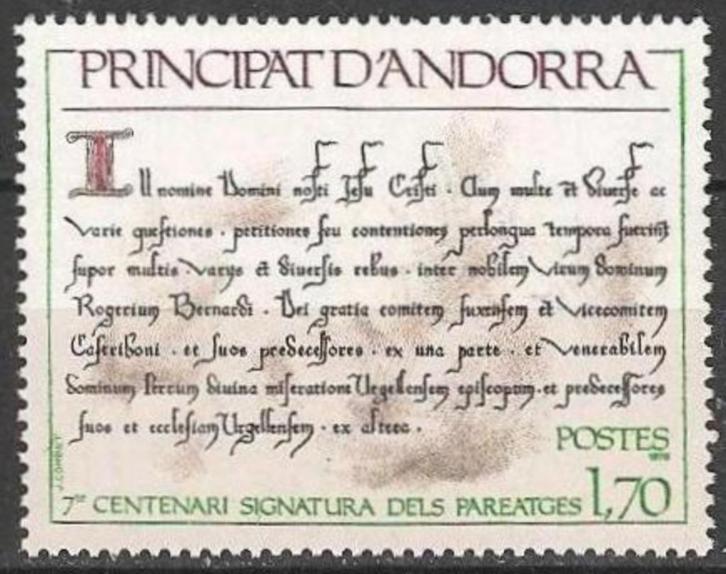 PRINCIPAT D'ANDORRA
In nomine Domini nosti Jesu Cristi · Cum multe et Diverse ac
Varie questiones · petitiones seu contentiones perlongua tempora fuerint
super multis · Varys et diversis rebus · inter nobilem Virum dominum
Rogerium Bernardi · Dei gratia comitem fuxensem et Vicecomitem
Castriboni · et suos predecessores · ex una parte · et Venerabilem
dominum Petrum divina miseratione Urgellensem episcopum · et predecessores
suos et ecclesiam Urgellensem · ex altera ·
POSTES
1978
1,70
7ᵉ CENTENARI SIGNATURA DELS PAREATGES
J. COMBET